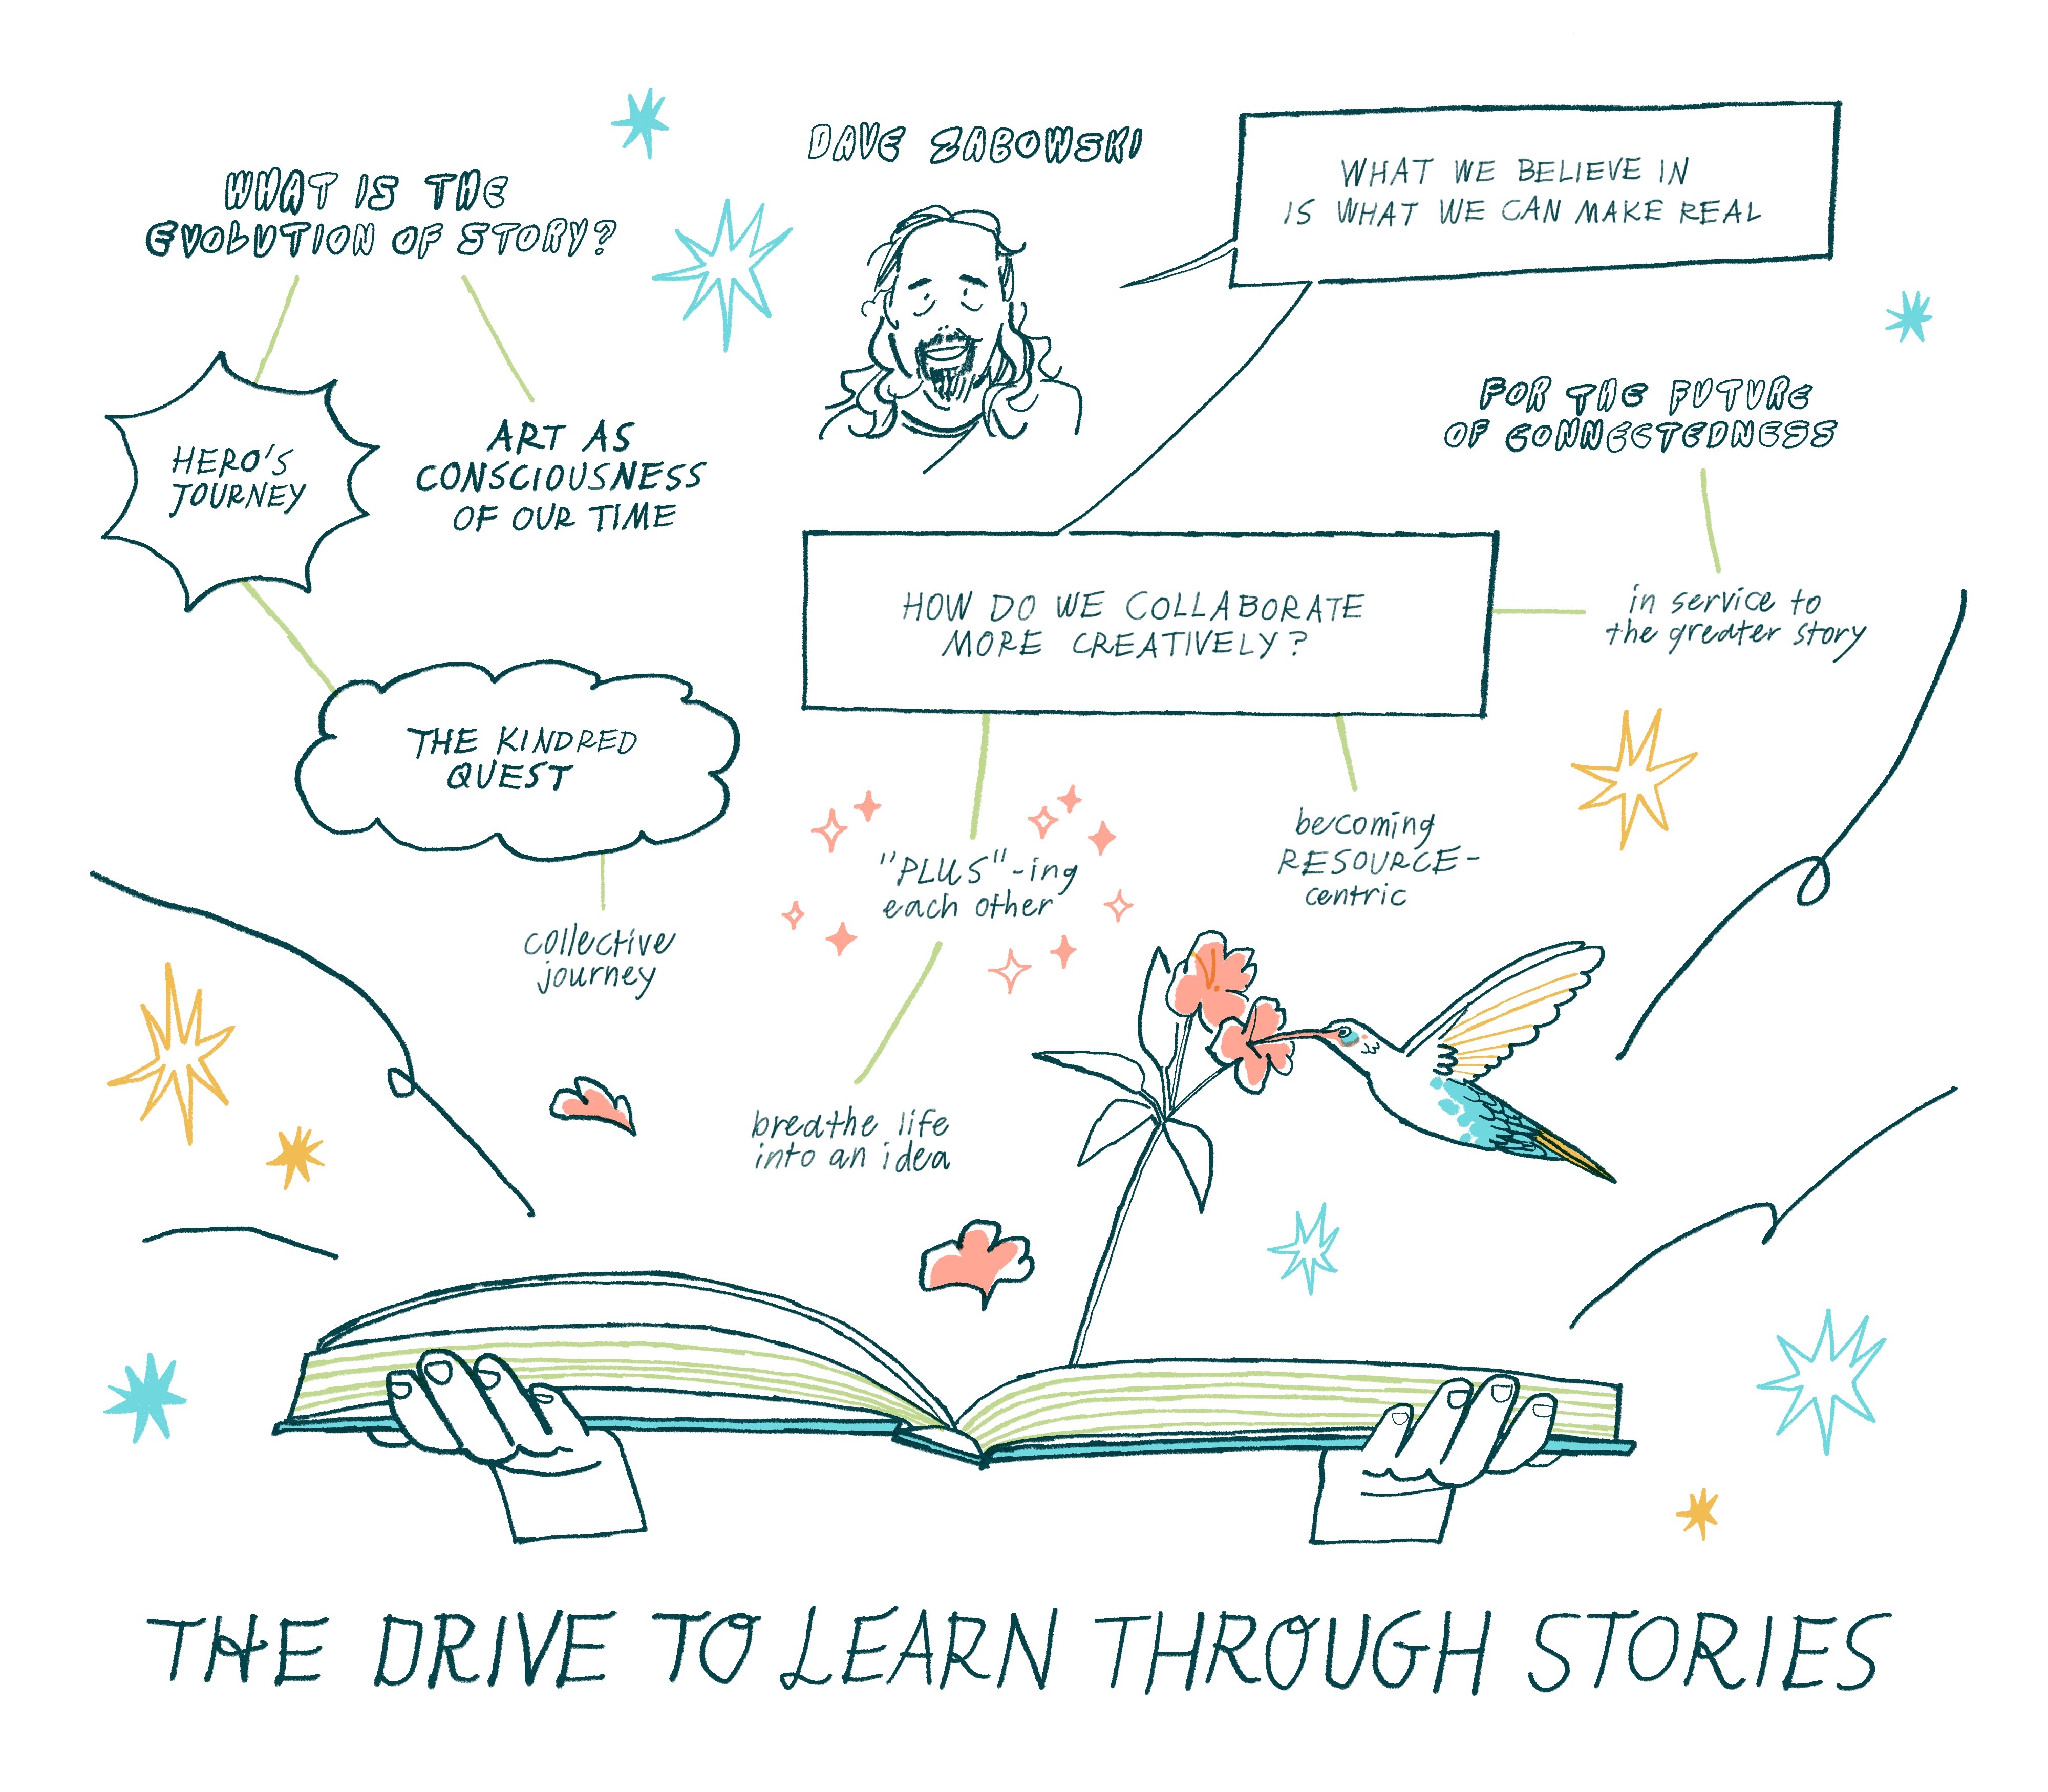 DAVE ZABOWSKI
WHAT WE BELIEVE IN
IS WHAT WE CAN MAKE REAL
WHAT IS THE
EVOLUTION OF STORY?
HERO'S
JOURNEY
ART AS
CONSCIOUSNESS
OF OUR TIME
THE KINDRED
QUEST
collective
journey
HOW DO WE COLLABORATE
MORE CREATIVELY?
"PLUS"-ing
each other
breathe life
into an idea
becoming
RESOURCE-
centric
FOR THE FUTURE
OF CONNECTEDNESS
in service to
the greater story
THE DRIVE TO LEARN THROUGH STORIES